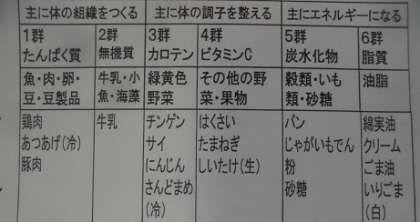 主に体の組織をつくる
主に体の調子を整える
主にエネルギーになる
1群
たんぱく質
2群
無機質
3群
カロテン
4群
ビタミンC
5群
炭水化物
6群
脂質
魚・肉・卵・
豆・豆製品
牛乳・小
魚・海藻
緑黄色
野菜
その他の野
菜・果物
穀類・いも
類・砂糖
油脂
鶏肉
あつあげ(冷)
豚肉
牛乳
チンゲン
サイ
にんじん
さんどまめ
(冷)
はくさい
たまねぎ
しいたけ(生)
パン
じゃがいもでん
粉
砂糖
綿実油
クリーム
ごま油
いりごま
(白)